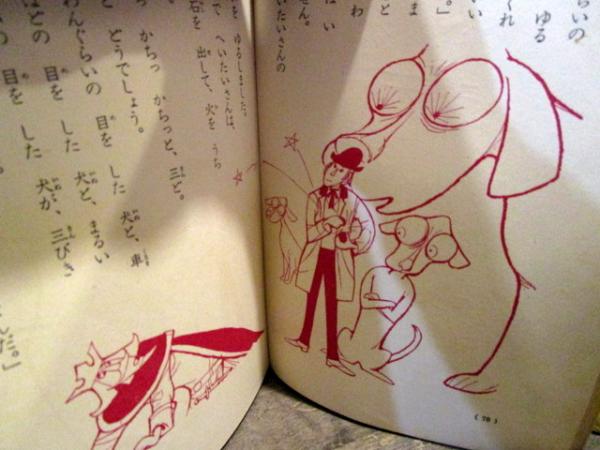 らいの
ゆる
くれ
い
ま
。」
と
わ
い
せん。
いたいさんの
を ゆるしました。
で へいたいさんは、
石を 出して、火を うち
かちっ かちっと、三ど。
どうでしょう。
わんぐらいの 目を した 犬と、車
目を した 犬と、まるい
ほどの 目を した 犬が、三びき
んだ。」
(78)